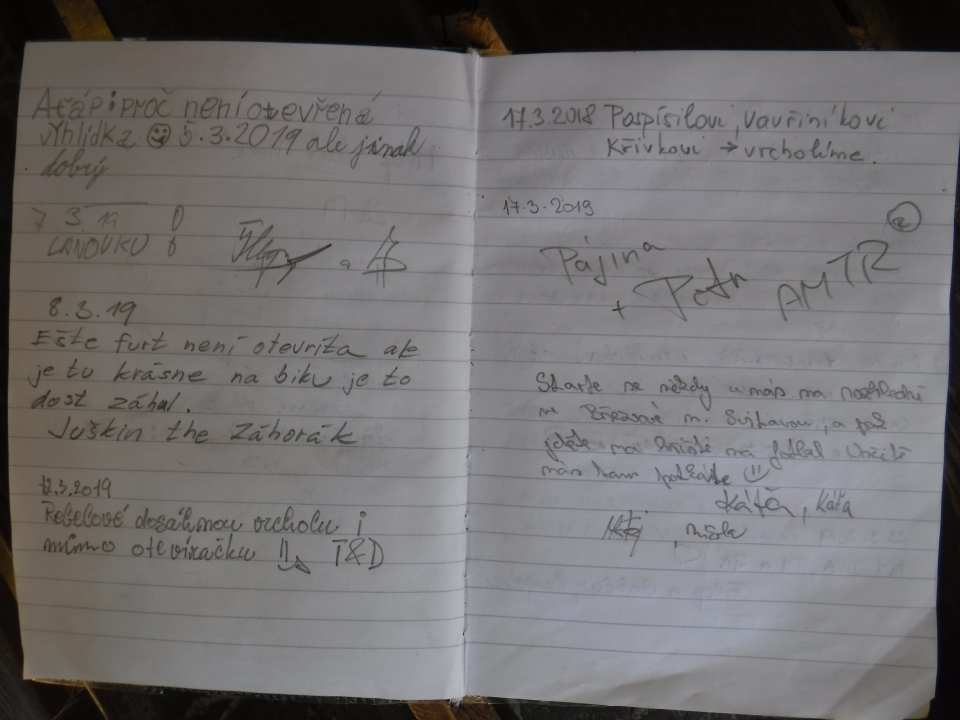 Aťápiproč neníotevřená
vyhlídka 5.3.2019 ale jinak
dobrý
7 3 19
LANOVKU
a
8.3.19
Ešte furt není otevrita ale
je tu krásne na biku je to
dost záhul.
Juškin the Záhorák
12.3.2019
Rebelové dosáhnou vrcholu i
mimo otevíračku !! T&D
17.3.2018 Pospíšilovi, vavřiníkovi
Křivkovi → vrcholíme.
17.3.2019
Pájina
+ Petr AMTR
Stavte se někdy u nás na rozhledně
ve Březové n. Svitavou, a pak
jděte na hřiště na fotbal Určitě
nás tam potkáte
Káťa, Káťa
, Misla